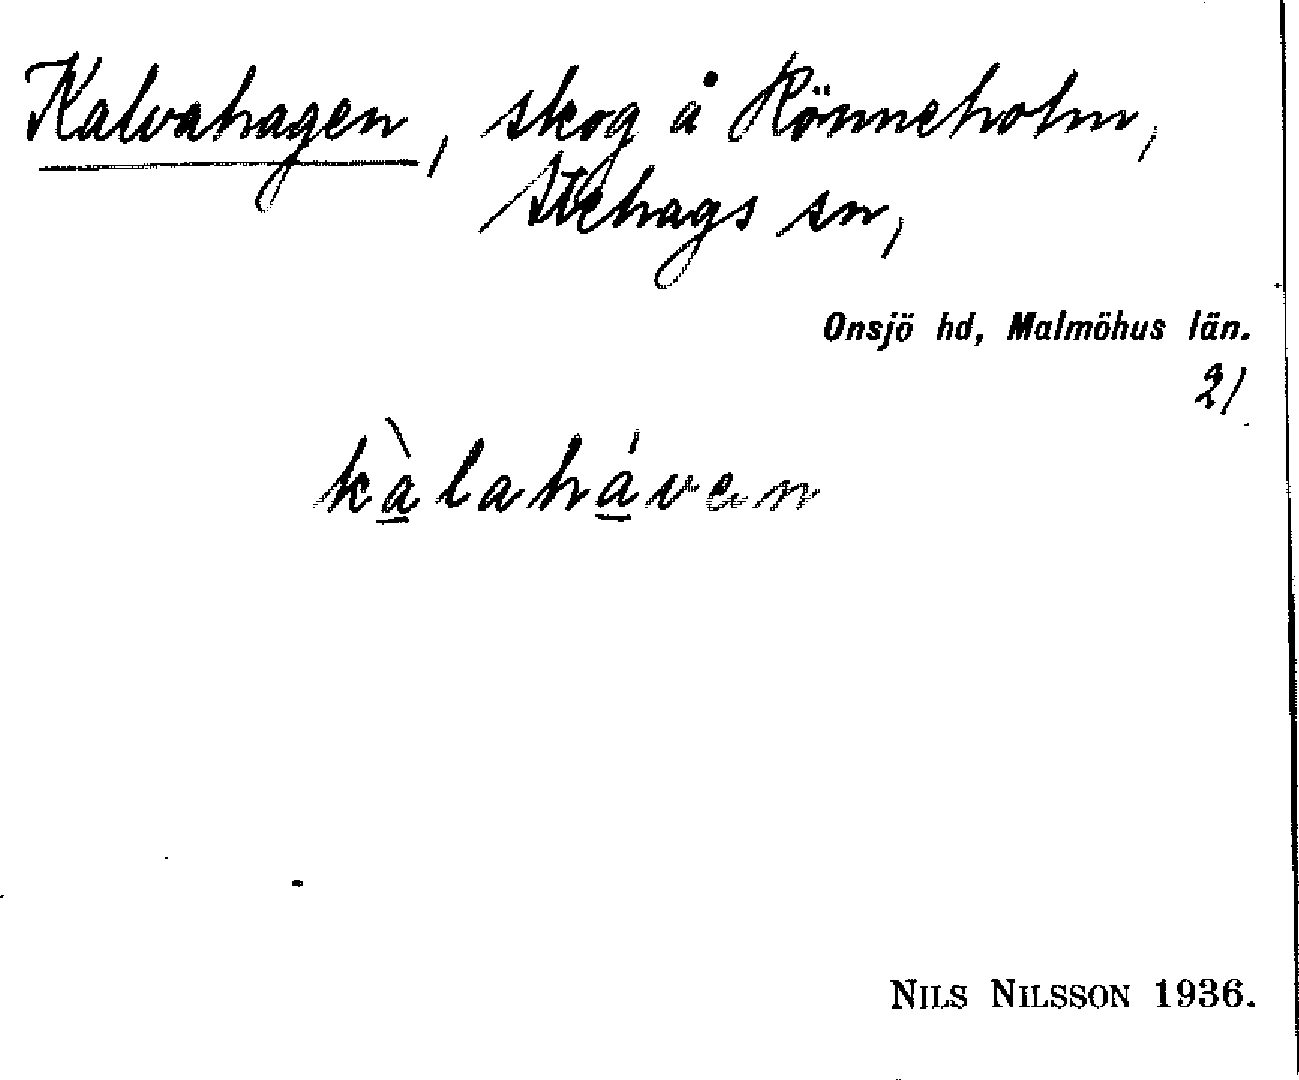 Kalvahagen, skog å Rönneholm,
Stehags sn,
Onsjö hd, Malmöhus län.
21
kàlaháven
NILS NILSSON 1936.